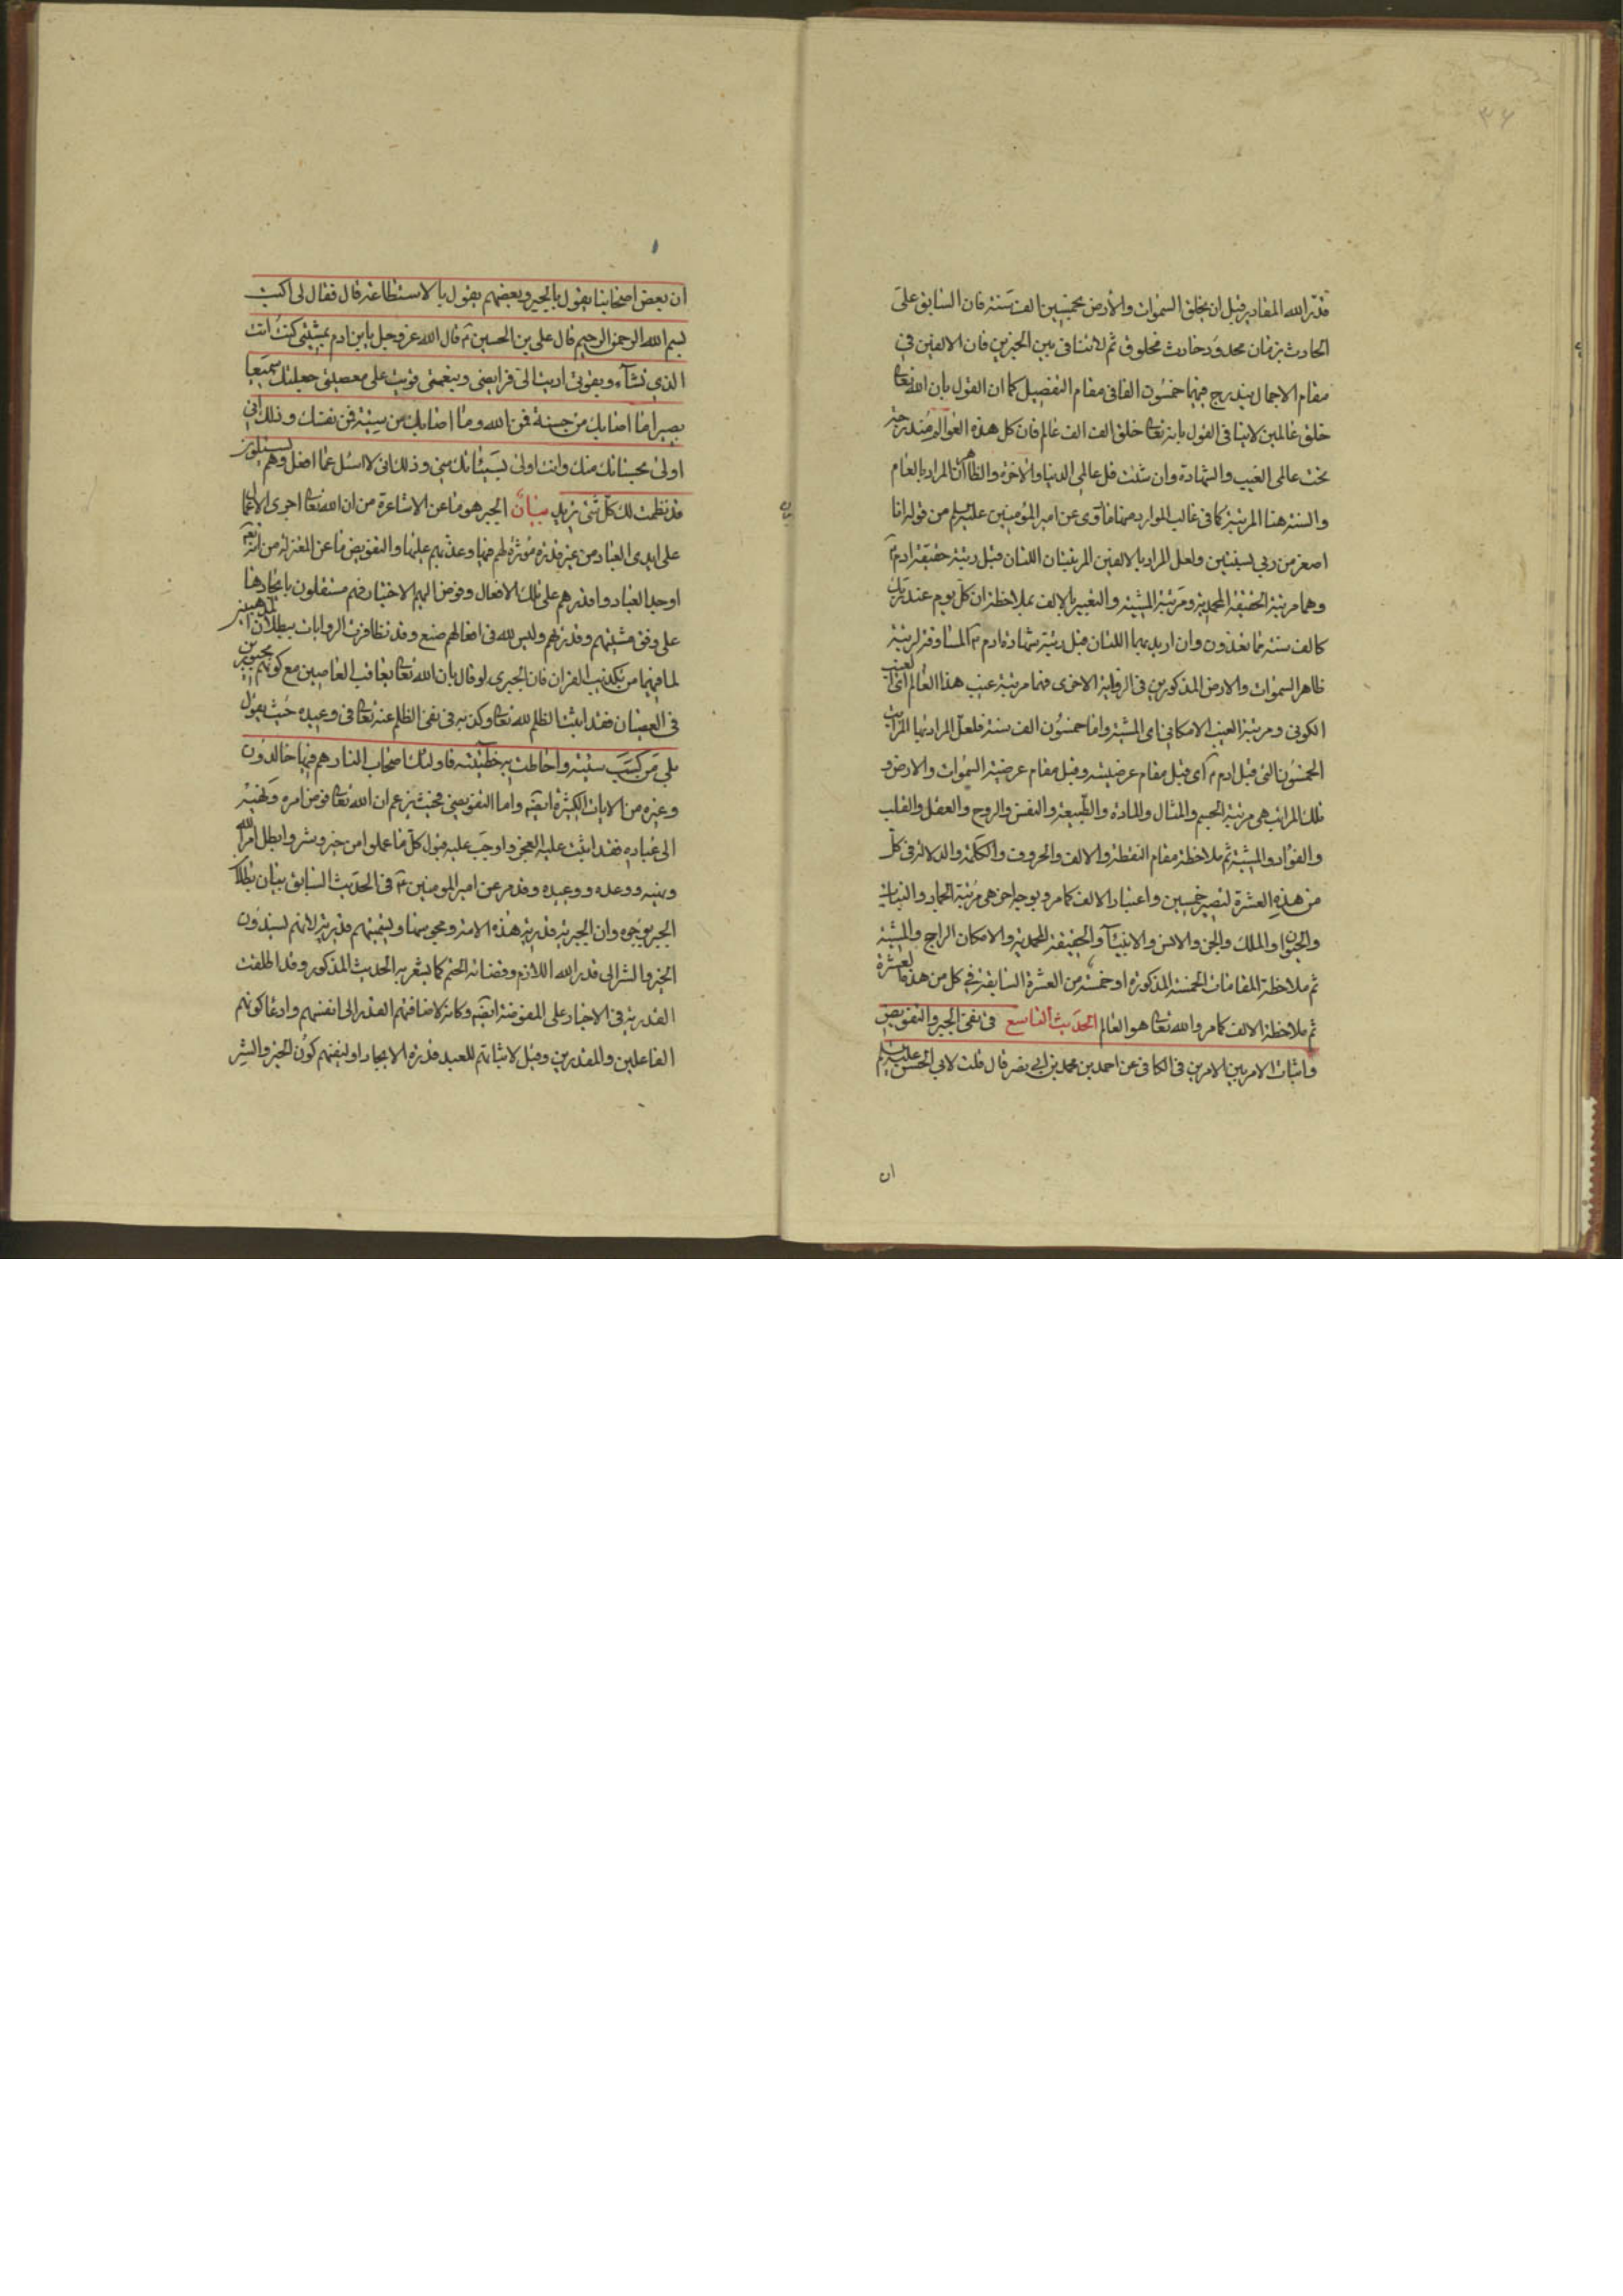 ۳۶
قدر الله المقادير قبل ان يخلق السموات والأرض بخمسين الف سنة فان السابق على
الحادث بزمان محدود حادث مخلوق ثم لا تنافى بين الخبرين فان الالفين فى
مقام الاجمال يندرج فيهما خمسون الفا فى مقام التفصيل كما ان القول بان الله تعالى
خلق عالمين لا ينافى القول بانه تعالى خلق الف الف عالم فان كل هذه العوالم مندرجة
تحت عالمى الغيب والشهادة وان شئت قل عالمى الدنيا والاخرة والظاهر ان المراد بالعام
والسنة هنا المرتبة كما فى غالب الموارد منها ما روى عن امير المؤمنين عليه السلم من قوله انا
اصغر من ربى بسنتين ولعل المراد بالالفين المرتبتان اللتان قبل رتبة حقيقة ادم ع
وهما مرتبة الحقيقة المحمدية ومرتبة المشية والتعبير بالالف بملاحظة ان كل يوم عند ربك
كالف سنة مما تعدون وان اريد بهما اللتان قبل رتبة شهادة ادم ع المساوقة لرتبة
ظاهر السموات والارض المذكورين فى الرواية الاخرى فهما مرتبة غيب هذا العالم اى الغيب
الكونى ومرتبة الغيب الامكانى اى المشية واما خمسون الف سنة فلعل المراد بها المراتب
الخمسون التى قبل ادم ع اى قبل مقام عرضيته وقبل مقام عرضية السموات والارض و
تلك المراتب هى مرتبة الجسم والمثال والمادة والطبيعة والنفس والروح والعقل والقلب
والفؤاد والمشية ثم ملاحظة مقام النقطة والالف والحروف والكلمة والدلالة فى كل
من هذه العشرة لتصير خمسين واعتبار الالف كما مر وبوجه اخر هى مرتبة الجماد والنبات
والحيوان والملك والجن والانس والانبيآء والحقيقة المحمدية والامكان الراجح والمشية
ثم ملاحظة المقامات الخمسة المذكورة او خمسة من العشرة السابقة فى كل من هذه العشرة
ثم ملاحظة الالف كما مر والله تعالى هو العالم الحديث التاسع فى نفى الجبر والتفويض
واثبات الامر بين الامرين فى الكافى عن احمد بن محمد بن ابى نصر قال قلت لابى الحسن عليه السلم
ان
ان بعض اصحابنا يقول بالجبر وبعضهم يقول بالاستطاعة قال فقال لى اكتب
بسم الله الرحمن الرحيم قال على بن الحسين ع قال الله عز وجل يا بن ادم بمشيتى كنت انت
الذى تشآء وبقوتى اديت الى فرايضى وبنعمتى قويت على معصيتى جعلتك سميعا
بصيرا ما اصابك من حسنة فمن الله وما اصابك من سيئة فمن نفسك وذلك انى
اولى بحسناتك منك وانت اولى بسيئاتك منى وذلك انى لا اسئل عما افعل وهم يسئلون
قد نظمت لك كل شئ تريد بيان الجبر هو ما عن الاشاعرة من ان الله تعالى اجرى الاعمال
على ايدى العباد من غير قدرة مؤثرة لهم فيها وعذبهم عليها والتفويض ما عن المعتزلة من انه تعالى
اوجد العباد واقدرهم على تلك الافعال وفوض اليهم الاختيار فهم مستقلون بايجادها
على وفق مشيتهم وقدرتهم وليس لله فى افعالهم صنع وقد تظافرت الروايات ببطلان المذهبين
لما فيهما من تكذيب القران فان الجبرى لو قال بان الله تعالى يعاقب العاصين مع كونهم مجبورين
فى العصيان فقد اثبت الظلم لله تعالى وكذبه فى نفى الظلم عنه تعالى فى وعيده حيث يقول
بلى من كسب سيئة واحاطت به خطيئته فاولئك اصحاب النار هم فيها خالدون
وغيره من الايات الكثيرة ايضا واما التفويضى فحيث يزعم ان الله تعالى فوض امره ونهيه
الى عباده فقد اثبت عليه العجز واوجب عليه قبول كل ما عملوا من خير وشر وابطل امر الله
ونهيه ووعده ووعيده وقد مر عن امير المومنين ع فى الحديث السابق بيان بطلان
الجبر بوجوه وان الجبرية قدرية هذه الامة ومجوسها وتسميتهم قدرية لانهم يسندون
الخير والشر الى قدر الله اللازم وقضائه الحتم كما يشعر به الحديث المذكور وقد اطلقت
القدرية فى الاخبار على المفوضة ايضا وكانه لاضافتهم القدر الى انفسهم وادعا كونهم
الفاعلين والمقدرين وقيل لاثباتهم للعبد قدرة الايجاد او لنفيهم كون الخير والشر